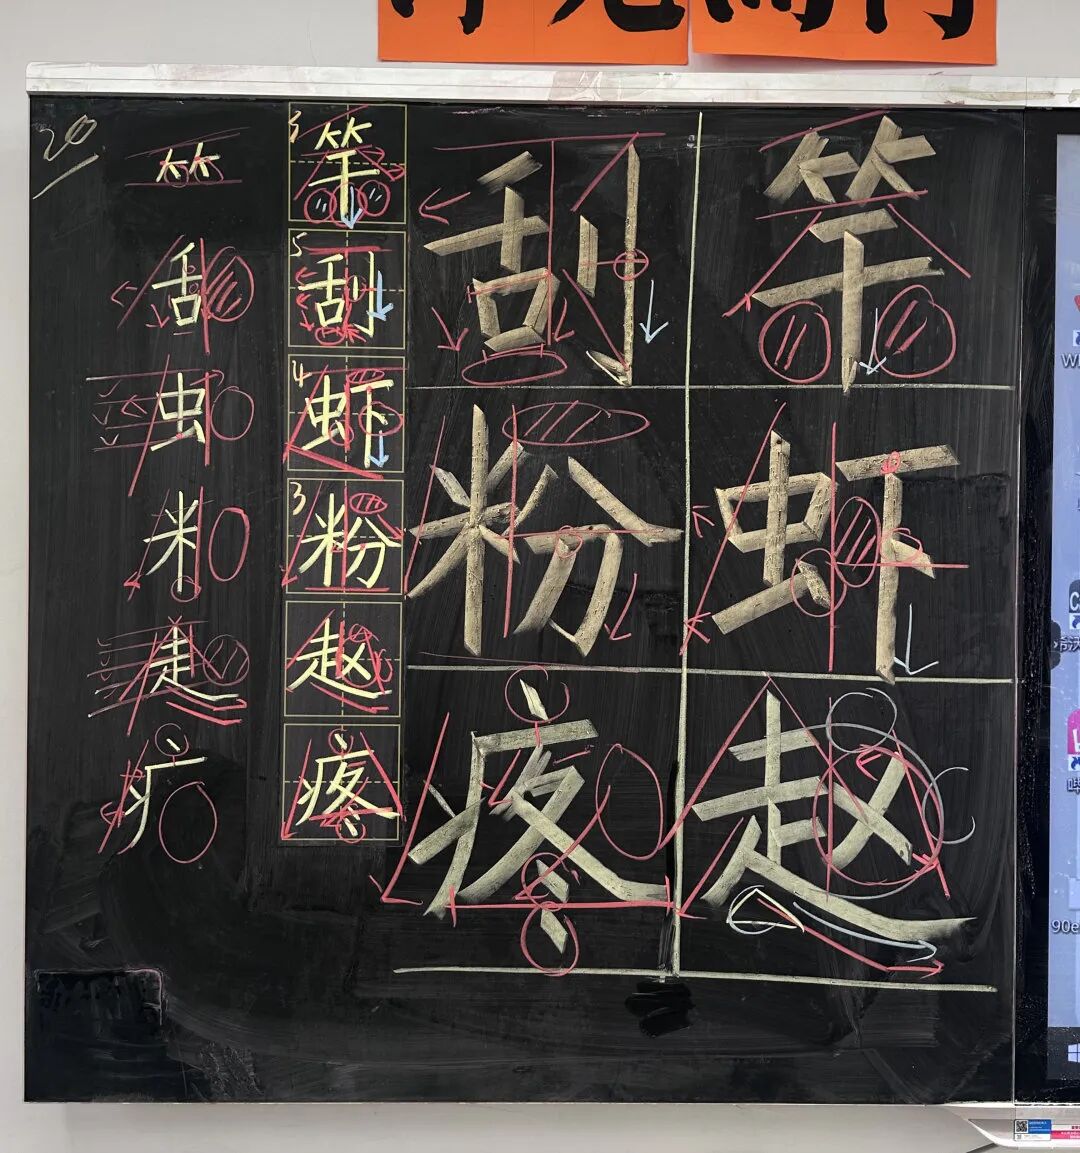 20
⺮
舌
虫
米
走
疒
3 竿
5 刮
4 虾
3 粉
赵
疼
刮 竿
粉 虾
疼 赵